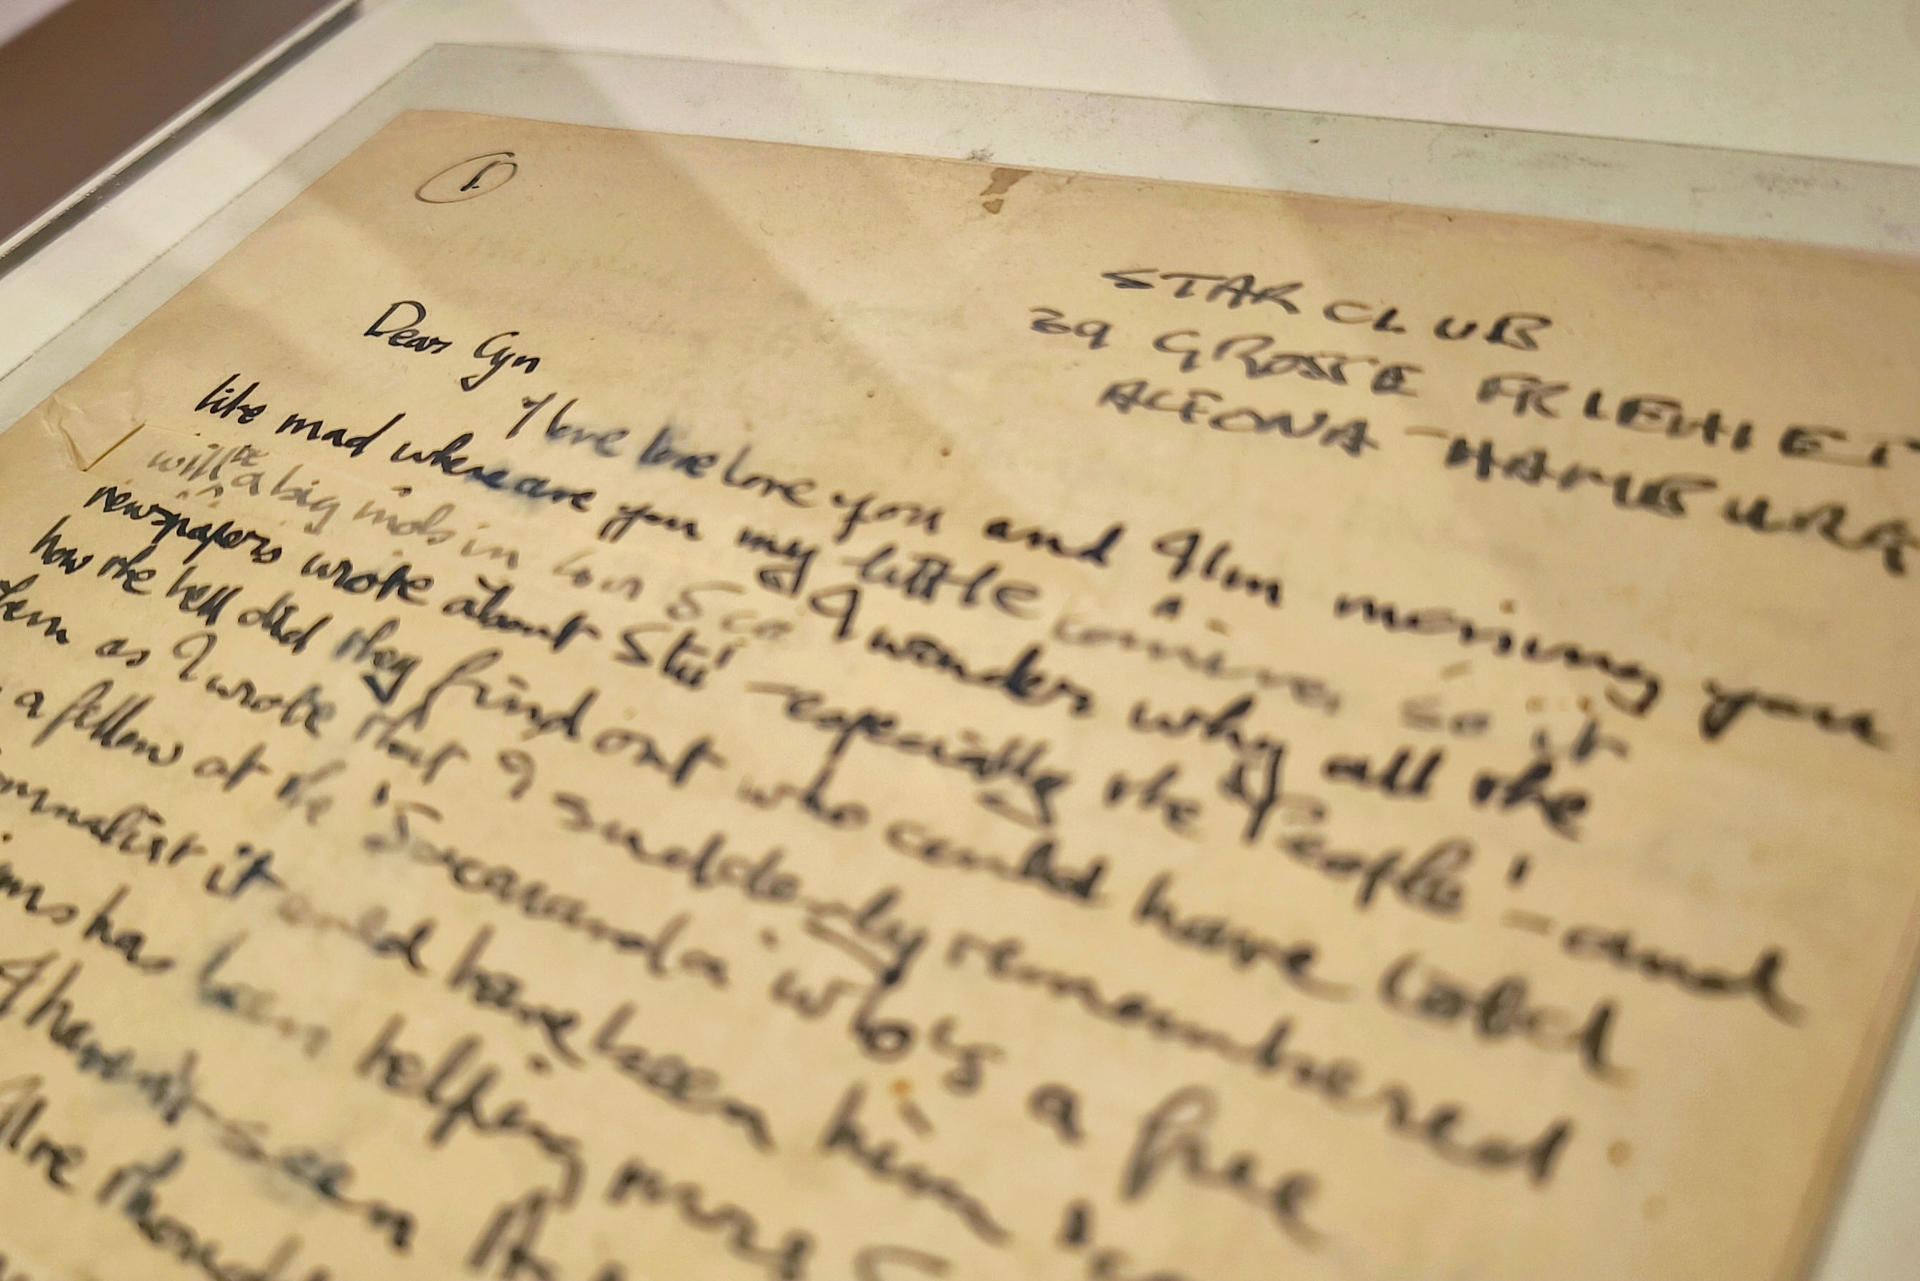 1.
STAR CLUB
39 GROSSE FRIEHIET
ALTONA - HAMBURG
Dear Cyn
I love love love you and I'm missing you
like mad where are you my little
I wonder why all the
newspapers wrote about Stu especially the 'People' - and
how the hell did they find out who could have told
them as I wrote that I suddenly remembered
a fellow at the 'Jacaranda' who's a free
it could have been him
has been helping mrs
I haven't seen